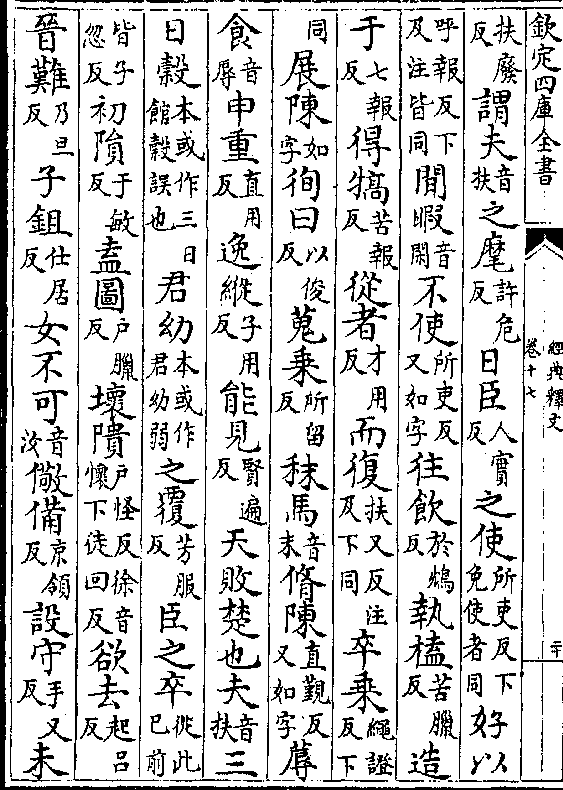 欽定四庫全書
經典釋文
卷十七
二十
扶廢反謂夫音扶之麾許危反日臣人實反之使所吏反下免使者同好以
呼報反下及注皆同閒暇音閑不使所吏反又如字往飲於鴆反執榼苦臘反造
于七報反得犒苦報反從者才用反而復扶又反注及下同卒乘繩證反下
同展陳如字徇曰以俊反蒐乘所留反秣馬音末脩陳直覲反又如字蓐
食音辱申重直用反逸縱子用反能見賢遍反天敗楚也夫音扶三
日穀本或作三日館穀誤也君幼本或作君幼弱之覆芳服反臣之卒從此已前
皆子忽反初隕于敏反盍圖戶臘反壞隤戶怪反徐音懷下徒回反欲去起呂反
晉難乃旦反子鉏仕居反女不可音汝儆備京領反設守手又反未